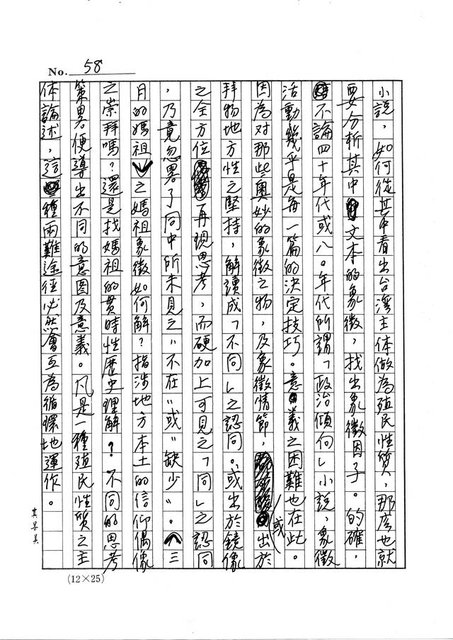 No. 58
小說，如何從其中看出台灣主体做為殖民性質，那麼也就
要分析其中文本的象徵，找出象徵因子。的確，
不論四十年代或八〇年代所謂「政治傾向」小說，象徵
活動幾乎是每一篇的決定技巧。意義之困難也在此。
因為對那些奧妙的象徵之物，及象徵情節，或出於
拜物地方性之堅持，解讀成「不同」之認同。或出於鏡像
之全方位再現思考，而硬加上可見之「同」之認同
，乃竟忽畧了同中所未見之"不在"或"缺少"。三
月的媽祖之媽祖象徵如何解？指涉地方本土的信仰偶像
之崇拜嗎？還是找媽祖的貫時性歷史理解？不同的思考
策畧便導出不同的意図及意義。凡是一種殖民性質之主
体論述，這種兩難途徑必然會互為循環地運作。
(12×25)